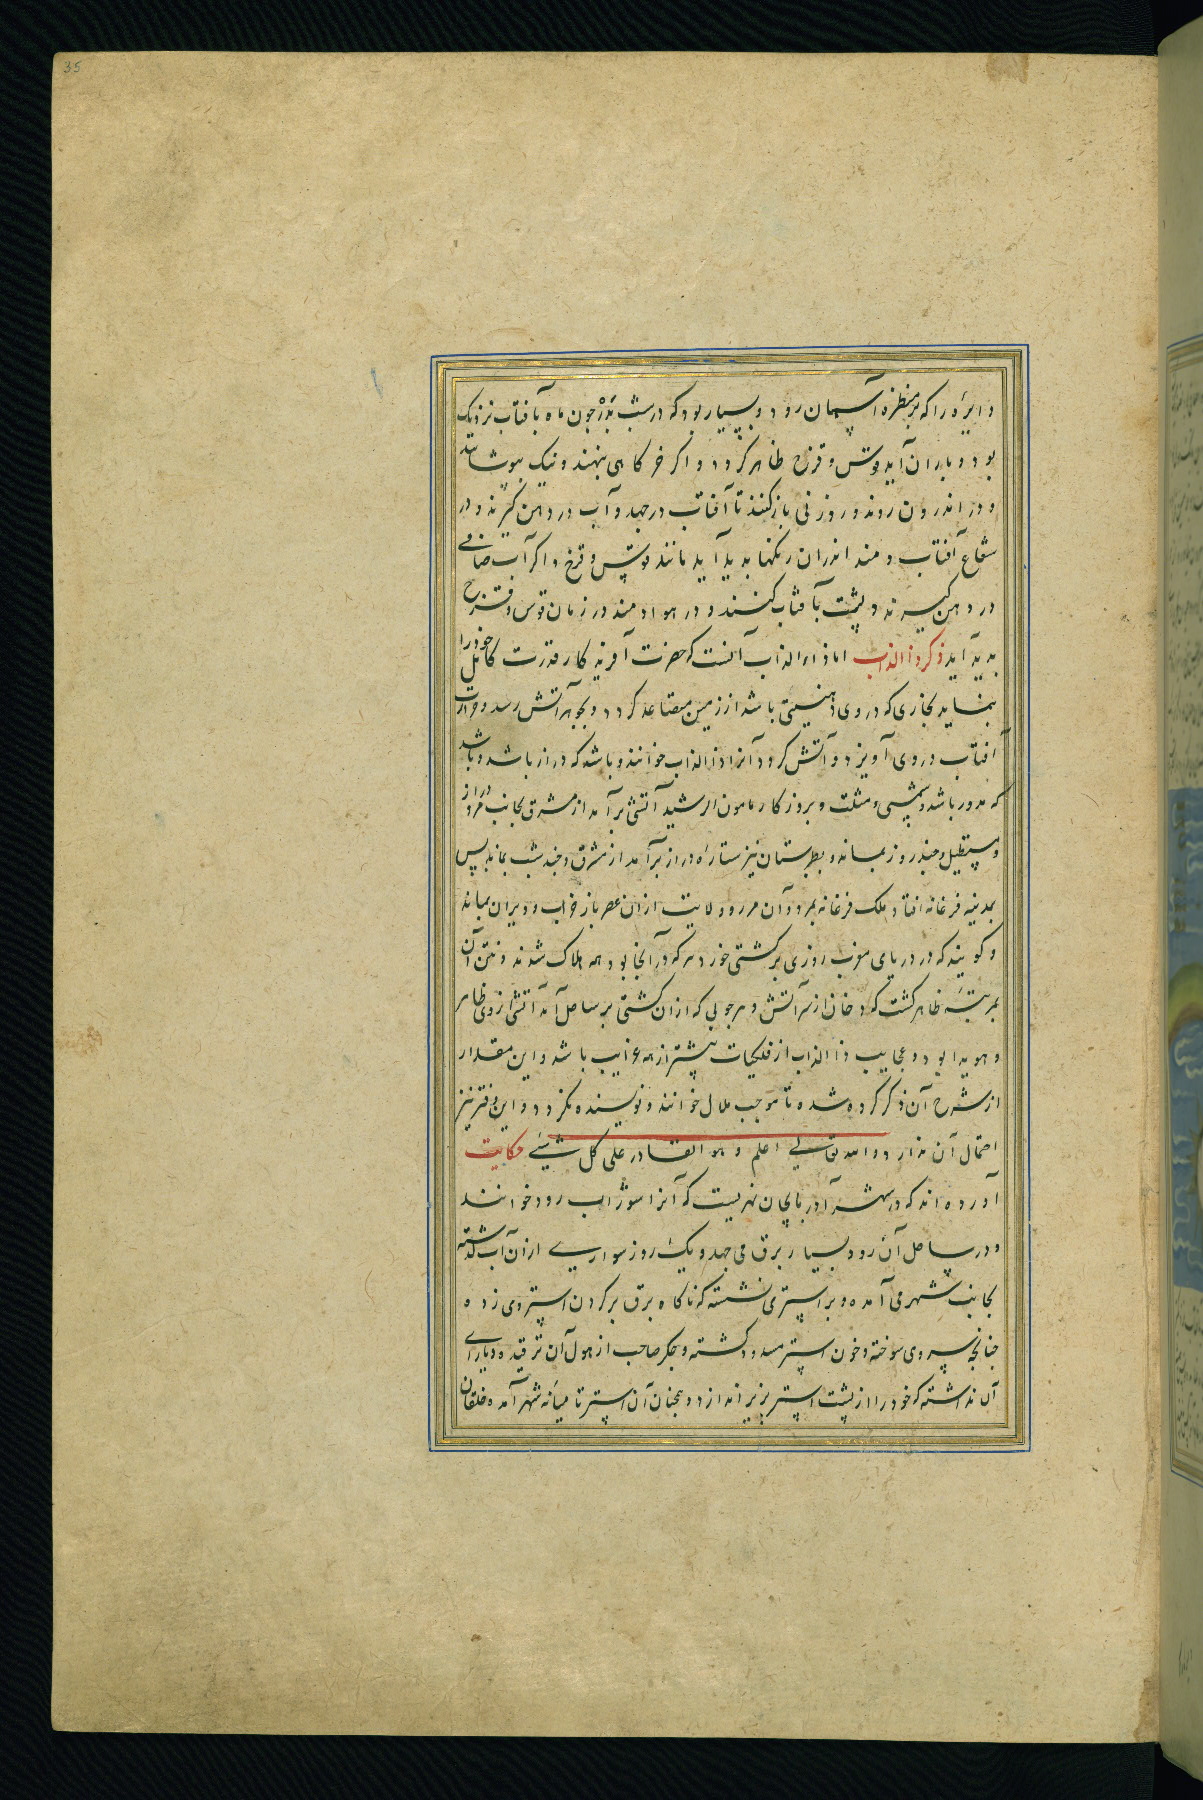 35
دایره را که بر منظره آسمان رود و بسیار بود که در شب بدر چون ماه بآفتاب نزدیک
بود و باران آید قوس و قزح ظاهر کردد و اکر خرکاهی بنهند و نیک بپوشانند
و در اندرون روند و روزنی باز کنند تا آفتاب درجهد و آب در دهن کیرند و در
شعاع آفتاب دمند اندران رنکها بدید آید مانند قوس و قزح و اکر آب صافی
در دهن کیرند و پشت بآفتاب کنند و در هوا دمند در زمان قوس و قزح
بدید آید ذکر ذوالذنب اما ذوالذنب آنست که حضرت آفریدکار قدرت کامل خود را
بنماید بخاری که در وی دهنیتی باشد از زمین متصاعد کردد و بجوهر آتش رسد و حرارت
آفتاب در وی آویزد و آتش کردد آنرا ذوالذنب خوانند و باشد که دراز باشد و باشد
که مدور باشد و شمسی و مثلث و بروزکار مامون الرشید آتشی برآمد از مشرق بجانب دراز
و مستطیل و چند روز بماند و بطبرستان نیز ستاره دراز برآمد از مشرق و چند شب بماند پس
بمدینه فرغانه افتاد ملک فرغانه بمرد و آن مرز و ولایت ازان عصر باز خراب و ویران بماند
و کویند که در دریای مغرب روزی بر کشتی خورد هر که در آنجا بود همه هلاک شدند و نتن آن
بمرتبه ظاهر کشت که دخان از سر آتش و هر چوبی که ازان کشتی بر ساحل آمد آتشی از وی ظاهر
و هویدا بود و عجایب ذوالذنب از فلکیات بیشتر از همه غرایب باشد و این مقدار
از شرح آن ذکر کرده شده تا موجب ملال خوانند و نویسنده نکردد و این دفتر نیز
احتمال آن ندارد والله تعالی اعلم و هو القادر علی کل شیئ حکایت
آورده اند که در شهر آدربایجان نهریست که آنرا سوزاب رود خوانند
و در ساحل آن رود بسیار برق می جهد و یک روز سواری ازان آب کذشته
بجانب شهر می آمده و بر استری نشسته که ناکاه برق بر کردن استر وی زده
چنانچه سر وی سوخته و خون استر مسدود کشته و جکر صاحب از هول آن ترقیده و یارای
آن نداشته که خود را از پشت استر بزیر اندازد و همچنان آن استر تا میانه شهر آمده خلقان